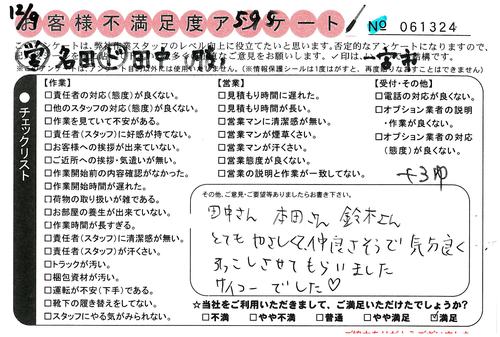 12/9
お客様不満足度アンケート
595
No 061324
営 名田 ド 田中(勝) 一宮市
アンケートは、弊社作業スタッフのレベル向上に役立てたいと思います。否定的なアンケートになりますので、
チェックリスト
【作業】
□責任者の対応(態度)が良くない。
□他のスタッフの対応(態度)が良くない。
□作業を見ていて不安がある。
□責任者(スタッフ)に好感が持てない。
□お客様への挨拶が出来ていない。
□ご近所への挨拶・気遣いが無い。
□作業開始前の内容確認がなかった。
□作業開始時間が遅れた。
□荷物の取り扱いが雑である。
□お部屋の養生が出来ていない。
□作業時間が長すぎる。
□責任者(スタッフ)に清潔感が無い。
□責任者(スタッフ)が汗くさい。
□トラックが汚い。
□梱包資材が汚い。
□運転が不安(下手)である。
□靴下の履き替えをしてない。
□スタッフにやる気がみられない。
【営業】
□見積もり時間に遅れた。
□見積もり時間が長い。
□営業マンに清潔感が無い。
□営業マンが煙草くさい。
□営業マンが汗くさい。
□営業態度が良くない。
□営業の説明と作業が一致してない。
【受付・その他】
□電話の対応が良くない。
□オプション業者の説明
・作業が良くない。
□オプション業者の対応
(態度)が良くない。
その他、ご意見・ご要望等ありましたらお書き下さい。
田中さん 本田さん 鈴木さん
とてもやさしくて仲良さそうで 気分良く
引っこしさせてもらいました
サイコーでした♡
★当社をご利用いただきまして、ご満足いただけたでしょうか?
□不満 □やや不満 □普通 □やや満足 ☑満足